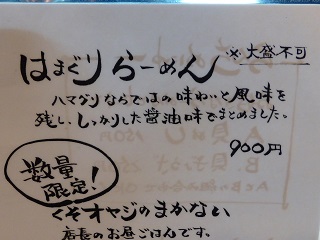 ※大盛不可
はまぐりらーめん
ハマグリならではの味わいと風味を
残し、しっかりした醤油味でまとめました。
900円
数量
限定!
くそオヤジのまかない
店長のお昼ごはんです。